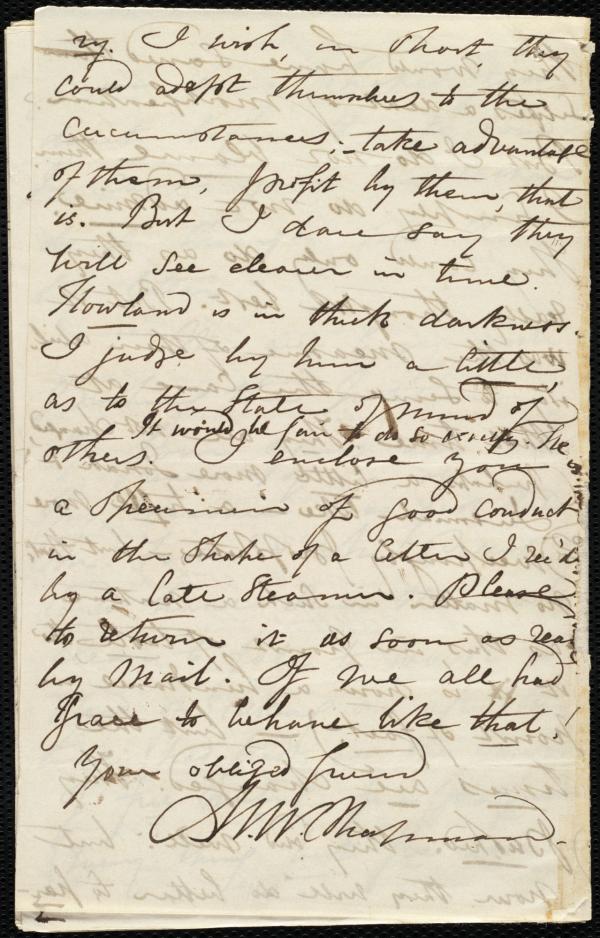 ry. I wish, in short, they
could adapt themselves to the
circumstances; - take advantage
of them, profit by them, that
is. But I dare say they
will see clearer in time.
Howland is in thick darkness.
I judge by him a little,
as to the state of mind of
It would be fair to do so exactly. He
others. I enclose you
a specimen of good conduct
in the shape of a letter I rec'd
by a late steamer. Please
to return it as soon as read
by mail. If we all had
grace to behave like that!
Your obliged friend
M. W. Chapman.